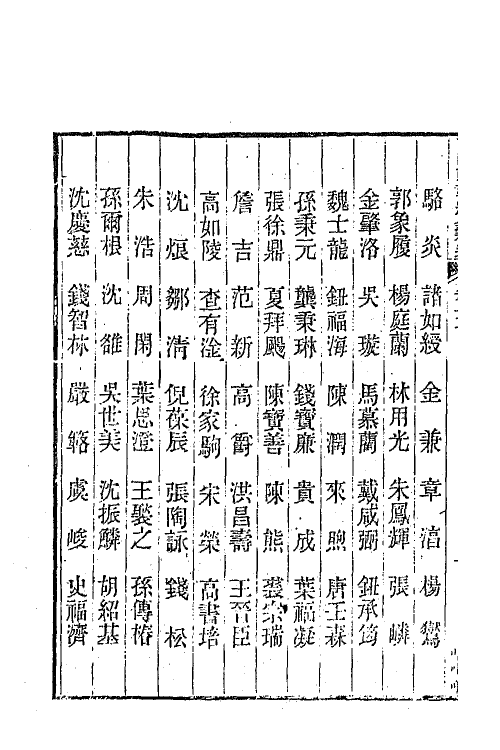 駱炎　諸如綬　金兼　章㵒　楊鸞
郭象履　楊庭蘭　林用光　朱鳳輝　張嶙
金肇洛　吳璇　馬慕蘭　戴咸弼　鈕承筠
魏士龍　鈕福海　陳潤　來煦　唐王森
孫秉元　龔秉琳　錢寶廉　貴成　葉福凝
張徐鼎　夏拜颺　陳寶善　陳熊　裘宗瑞
詹吉　范新　高爵　洪昌壽　王晉臣
高如陵　查有淦　徐家駒　宋榮　高書培
沈烺　鄒淸　倪葆辰　張陶詠　錢松
朱浩　周閑　葉思澄　王褧之　孫傳椿
孫爾根　沈雒　吳世美　沈振麟　胡紹基
沈慶慈　錢智林　嚴簵　虞峻　史福濟